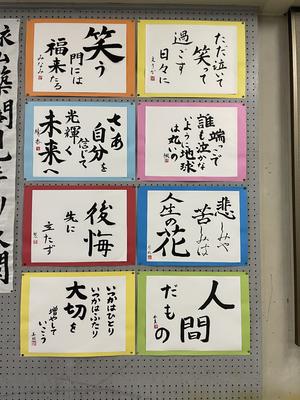 笑う
門には
福来たる
みなみ
ただ泣いて
笑って
過ごす
日々に
さあ
自分を
信じて
光輝く
未来へ
端っこで
誰も泣かな
いように地球
は丸いの
後悔
先に
立たず
悲しみや
苦しみは
人生の花
いつかはひとり
いつかはふたり
大切を
増やして
いこう
人間
だもの